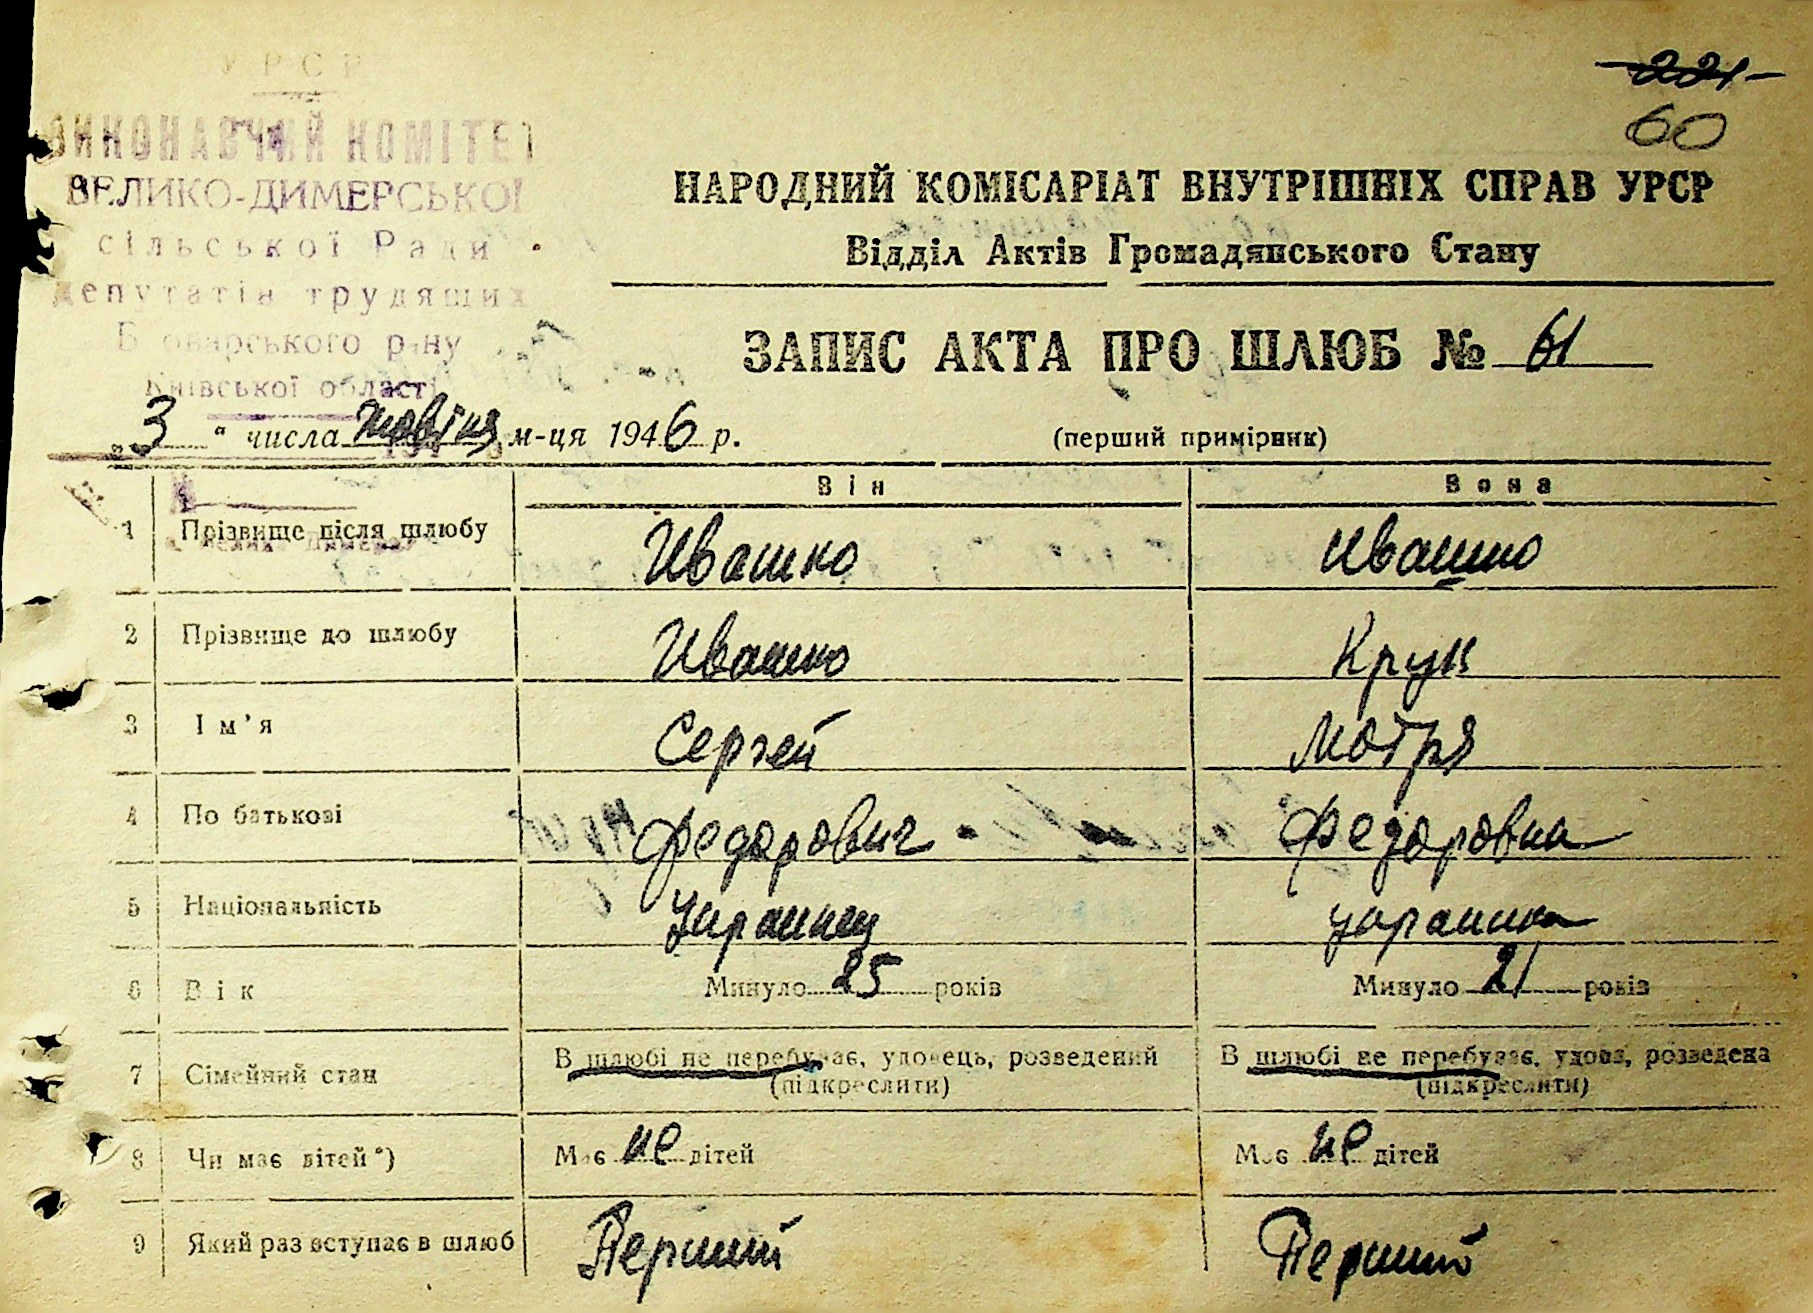 УРСР
ВИКОНАВЧИЙ КОМІТЕТ
ВЕЛИКО-ДИМЕРСЬКОЇ
сільської Ради
депутатів трудящих
Броварського р-ну
Київської області
221
60
НАРОДНИЙ КОМІСАРІАТ ВНУТРІШНІХ СПРАВ УРСР
Відділ Актів Громадянського Стану
ЗАПИС АКТА ПРО ШЛЮБ № 61
„3“ числа м-ця 1946 р. (перший примірник)
Він Вона
1 Прізвище після шлюбу Ивашко Ивашко
2 Прізвище до шлюбу Ивашко Крук
3 Ім'я Сергей Мотря
4 По батькові Федорович Федоровна
5 Національність Украинец украинка
6 Вік Минуло 25 років Минуло 21 років
7 Сімейний стан В шлюбі не перебуває, удовець, розведений В шлюбі не перебуває, удова, розведена
(підкреслити) (підкреслити)
8 Чи має дітей*) Має не дітей Має не дітей
9 Який раз вступає в шлюб Перший Перший